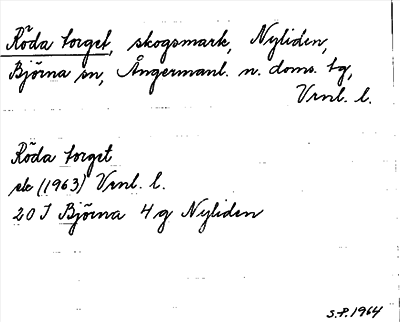 Röda torget, skogsmark, Nyliden,
Björna sn, Ångermanl. n. doms. tg,
Vrnl. l.
Röda torget
ek (1963) Vrnl. l.
20 I Björna 4 g Nyliden
S.P. 1964